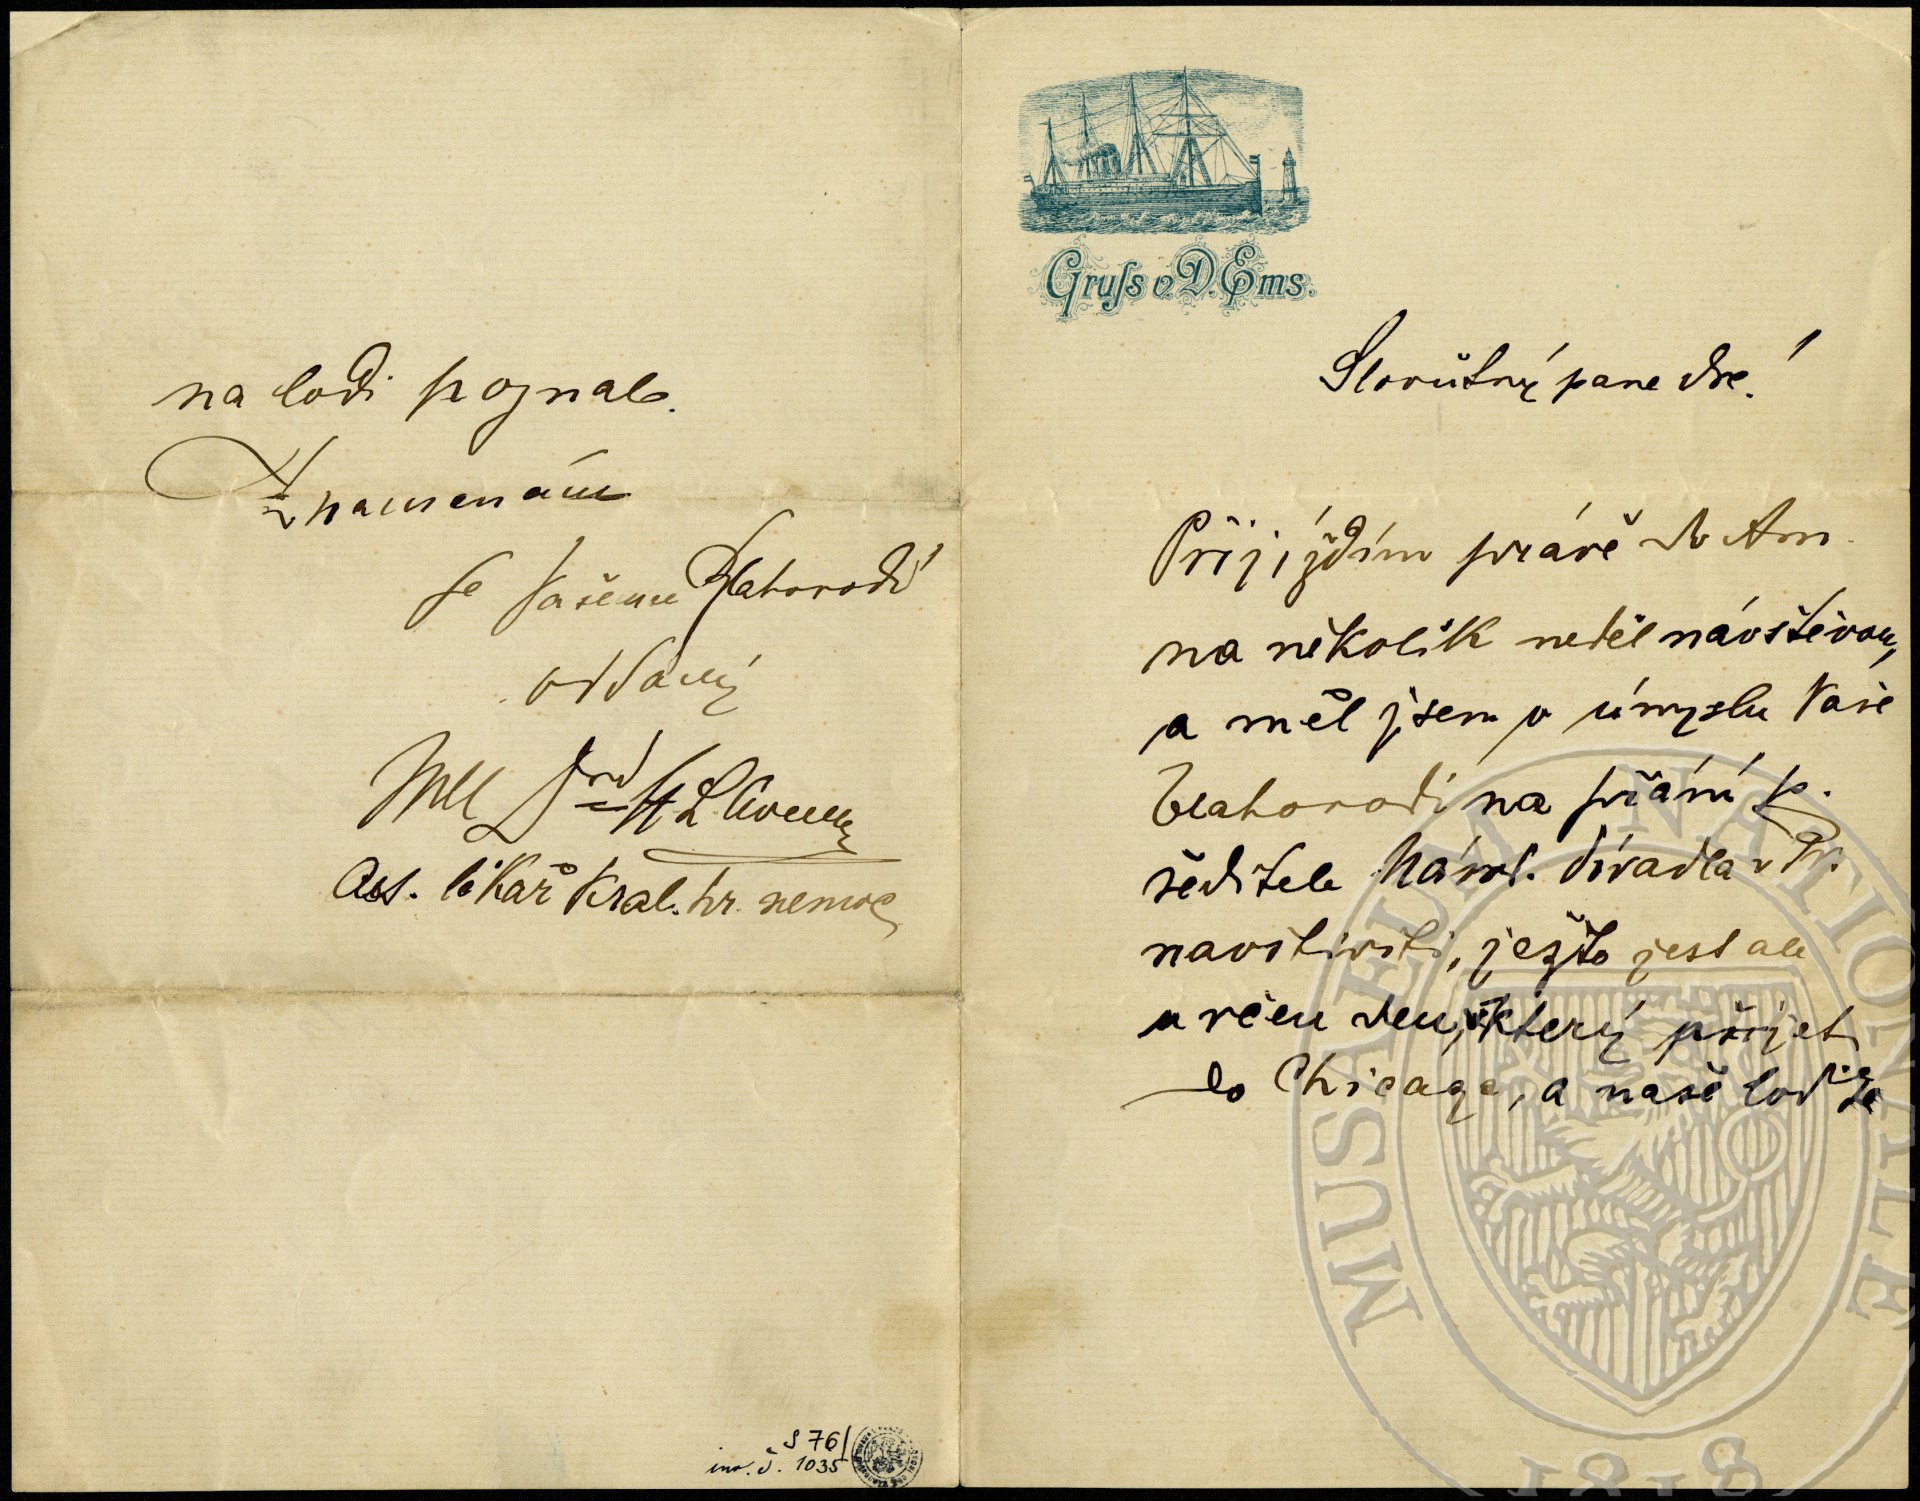 Gruss v. D. Ems.
Slovutný pane dre!
Přijíždím právě do Am.
na několik neděl návštěvou,
a měl jsem v úmyslu Vaše
blahorodí na přání p.
ředitele Národ. divadla v Pr.
navštíviti, ježto jest ale
určen den, který přijet
do Chicaga, a naše loď se
na lodi poznal.
Znamenám
se Vašemu Blahorodí
oddaný
Drd
Ass. lékař král. hr. nemoc
S 76/
inv. č. 1035
MUSAEUM NATIONALE
1818